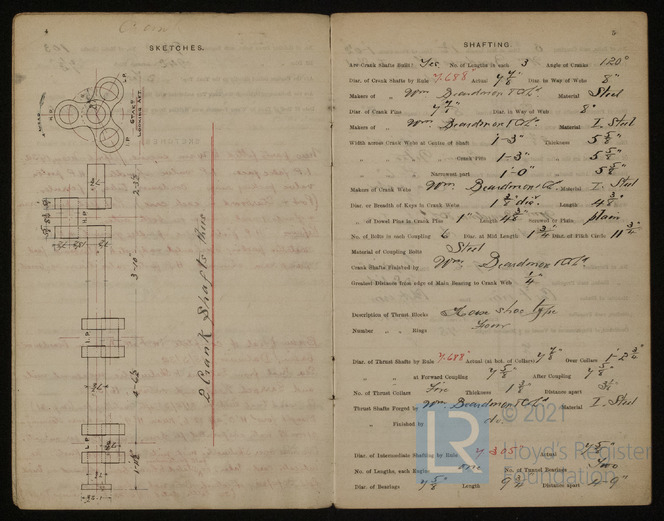 4
SKETCHES.
STARD
LOOKING AFT
H.P.
I.P.
L.P.
3-10"
2 Crank Shafts this
5
SHAFTING.
Are Crank Shafts Built? Yes No. of Lengths in each 3 Angle of Cranks 120°
Diar. of Crank Shafts by Rule 7.688" Actual 7 7/8" Diar. in Way of Webs 8"
Makers of " Wm. Beardmore & Co. Material Steel
Diar. of Crank Pins 7 7/8" Diar. in Way of Webs 8"
Makers of " Wm. Beardmore & Co. Material I. Steel
Width across Crank Webs at Centre of Shaft 1'-3" Thickness 5 5/8"
" " Crank Pins 1'-3" " 5 5/8"
" " Narrowest part 1'-0" " 5 5/8"
Makers of Crank Webs Wm. Beardmore & Co. Material I. Steel
Diar. or Breadth of Keys in Crank Webs dia. Length
" of Dowel Pins in Crank Pins 1" Length 4 3/4" Screwed or Plain plain
No. of Bolts in each Coupling 6 Diar. at Mid Length 1 3/4" Diar. of Pitch Circle 11 3/4"
Material of Coupling Bolts Steel
Crank Shafts Finished by Wm. Beardmore & Co.
Greatest Distance from edge of Main Bearing to Crank Web 1/4"
Description of Thrust Blocks Horse shoe type
Number " " Rings Four
Diar. of Thrust Shafts by Rule 7.688" Actual (at bot. of Collars) 7 7/8" Over Collars 1'-2 3/4"
" " at Forward Coupling 7 5/8" After Coupling 7 5/8"
No. of Thrust Collars Five Thickness Distance apart
Thrust Shafts Forged by Wm. Beardmore & Co. Material I. Steel
" Finished by do.
Diar. of Intermediate Shafting by Rule 7.305" Actual 7 5/8"
No. of Lengths, each Engine one No. of Tunnel Bearings Two
Diar. of Bearings 7 5/8" Length Distance apart
LR
© 2021
Lloyd's Register
Foundation